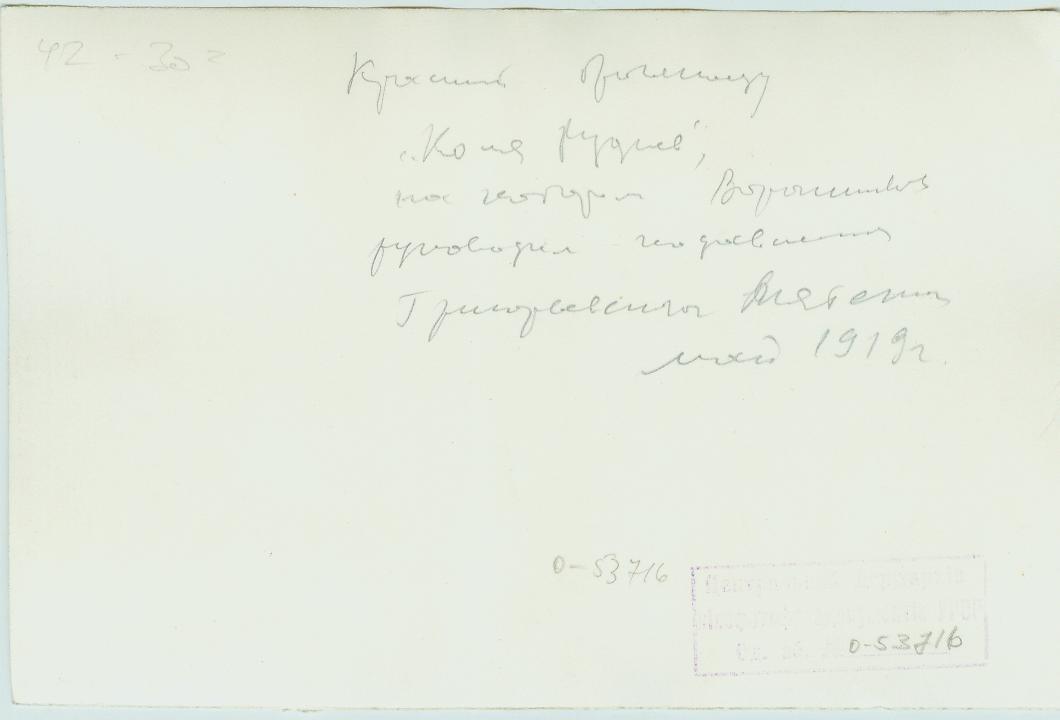 42 - 30 г
Красный бронепоезд
„Коля Руднев",
на котором Ворошилов
руководил подавлением
Григорьевского мятежа
май 1919 г.
0-53716
Центральний Держархів
0-53716